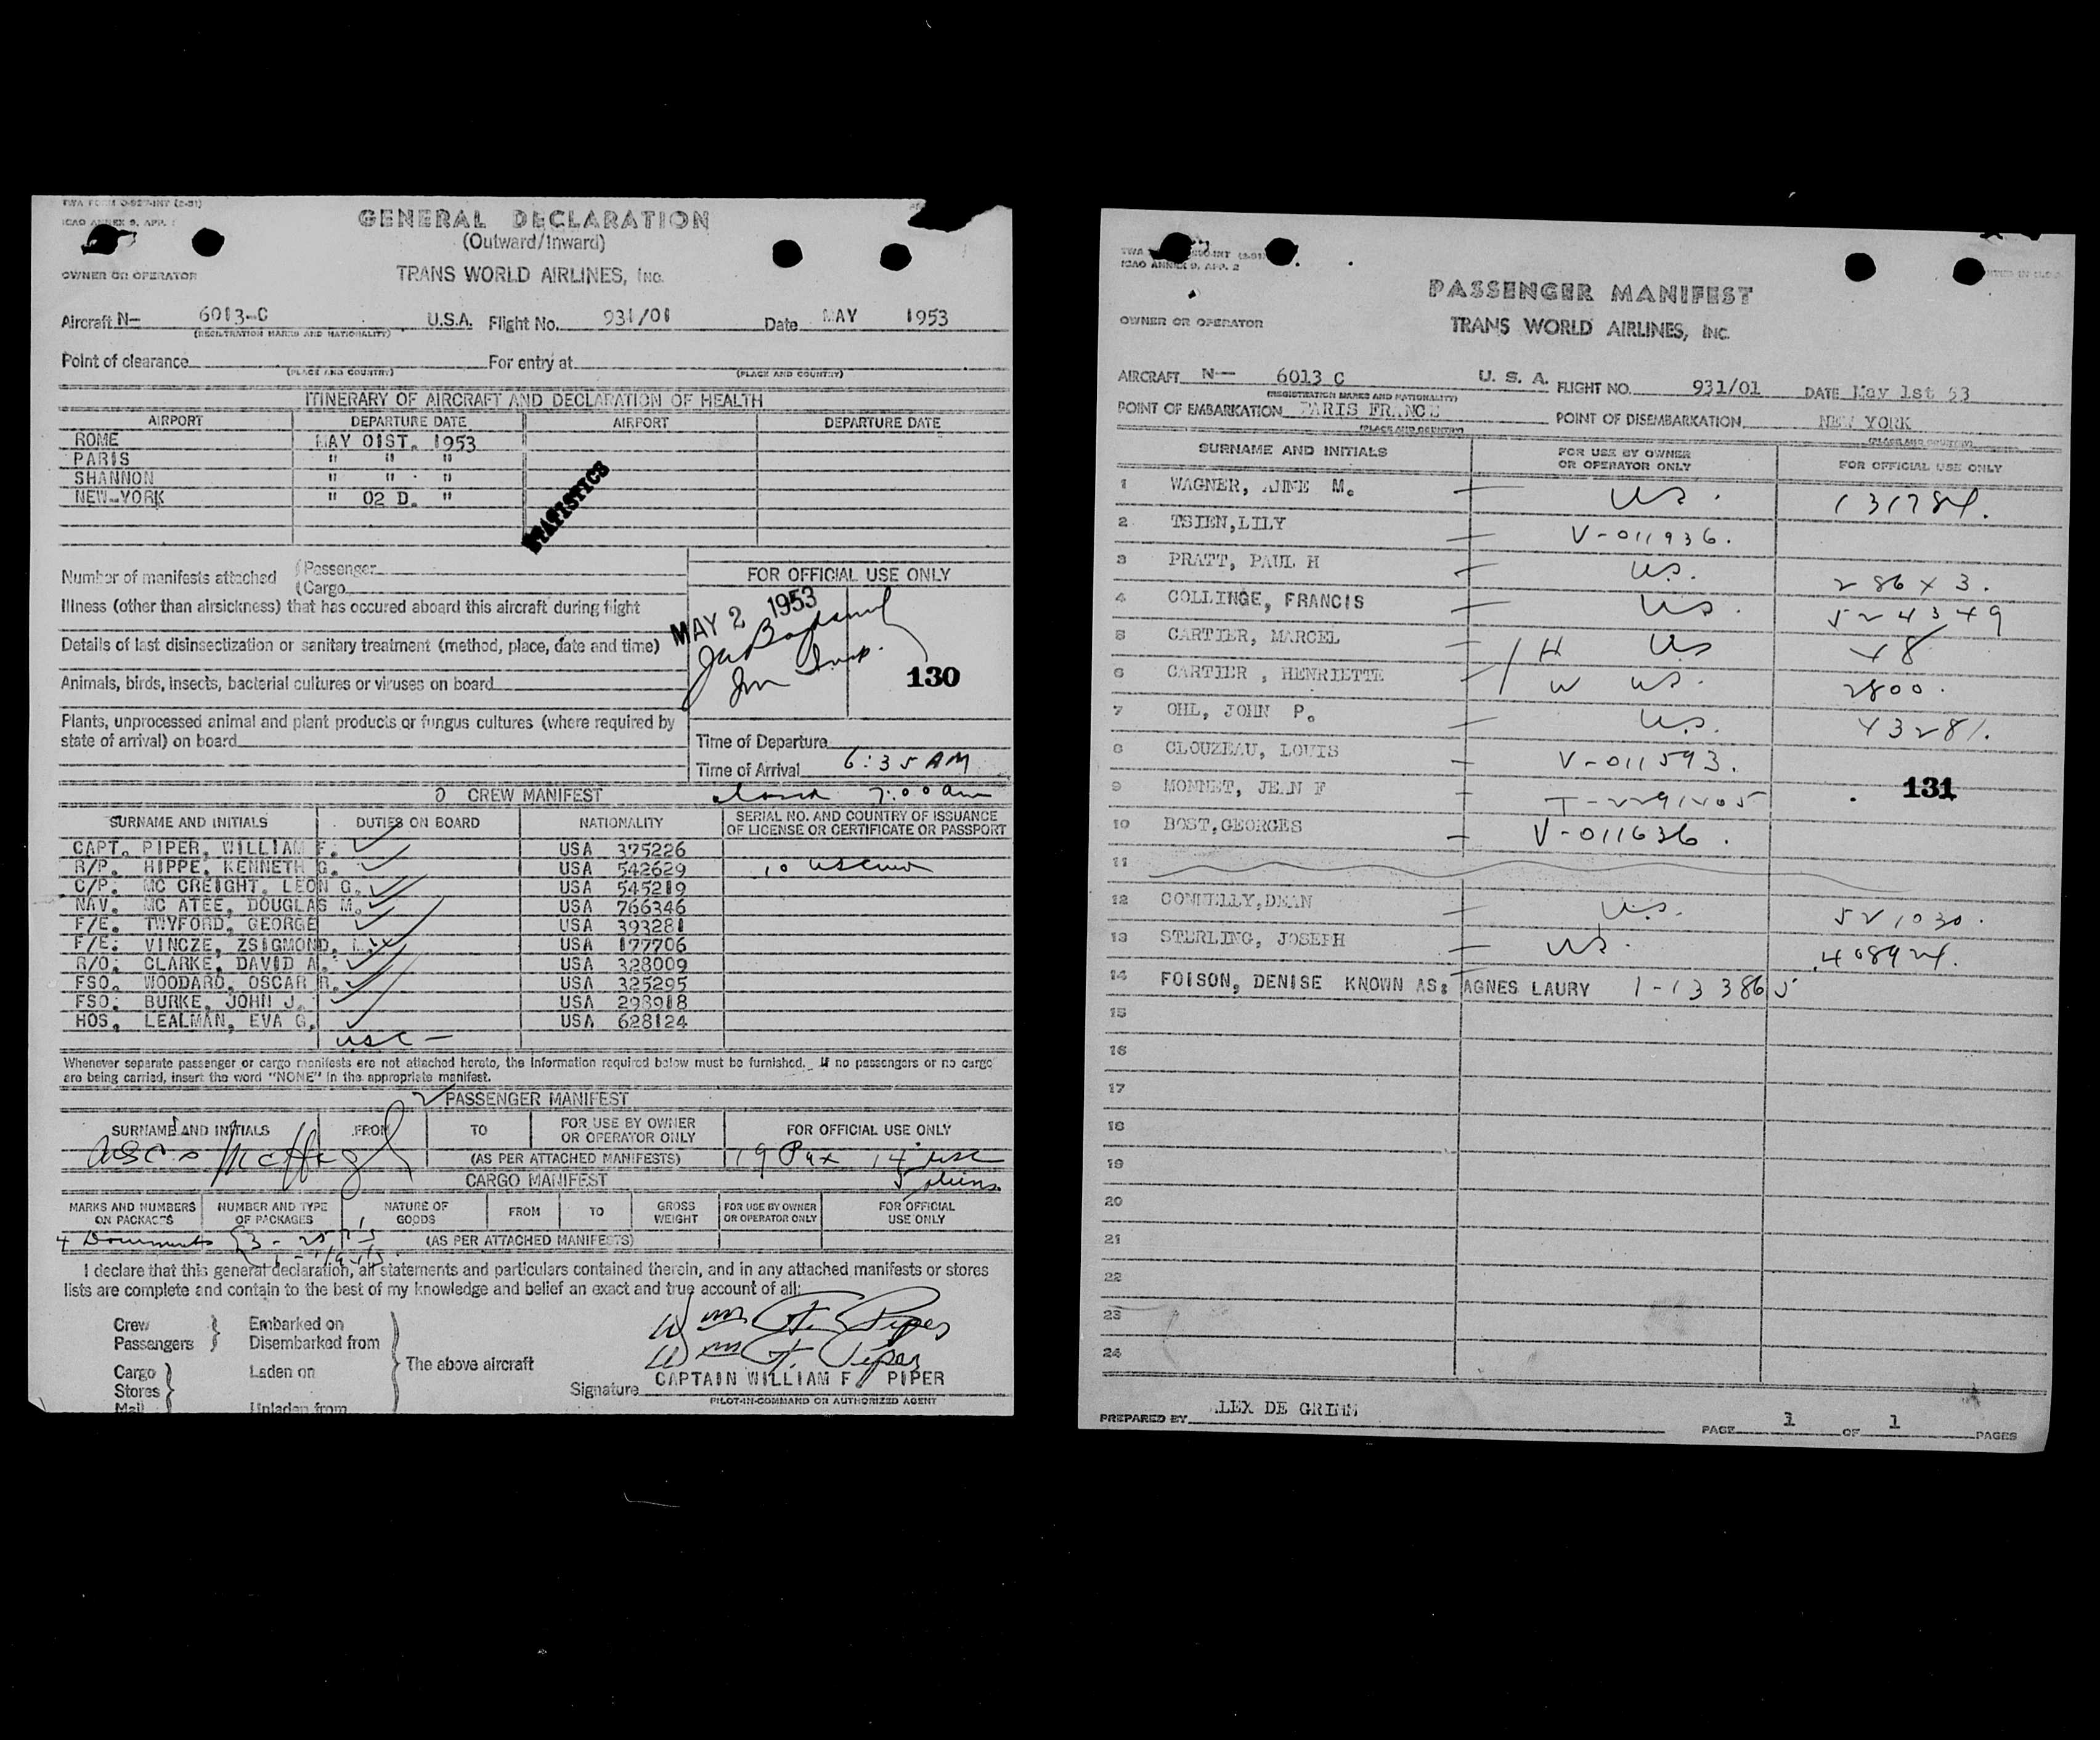 TWA FORM O-927-INT (2-51)
ICAO ANNEX 9, APP. 1
GENERAL DECLARATION
(Outward/Inward)
OWNER OR OPERATOR
TRANS WORLD AIRLINES, Inc.
Aircraft N- 6013-C U.S.A. Flight No. 931/01 Date MAY 1953
(REGISTRATION MARKS AND NATIONALITY)
Point of clearance For entry at
(PLACE AND COUNTRY) (PLACE AND COUNTRY)
ITINERARY OF AIRCRAFT AND DECLARATION OF HEALTH
AIRPORT DEPARTURE DATE AIRPORT DEPARTURE DATE
ROME MAY 01ST. 1953
PARIS " " "
SHANNON " " "
NEW-YORK " 02 D. "
STATISTICS
Number of manifests attached (Passenger
(Cargo
FOR OFFICIAL USE ONLY
Illness (other than airsickness) that has occured aboard this aircraft during flight
MAY 2 1953
Details of last disinsectization or sanitary treatment (method, place, date and time)
Imm Insp.
130
Animals, birds, insects, bacterial cultures or viruses on board
Plants, unprocessed animal and plant products or fungus cultures (where required by
state of arrival) on board
Time of Departure
Time of Arrival 6:35 AM
CREW MANIFEST 7:00 am
SURNAME AND INITIALS DUTIES ON BOARD NATIONALITY SERIAL NO. AND COUNTRY OF ISSUANCE
OF LICENSE OR CERTIFICATE OR PASSPORT
CAPT. PIPER, WILLIAM F. USA 375226
R/P. HIPPE, KENNETH G. USA 542629
C/P. MC CREIGHT, LEON G. USA 545219
NAV. MC ATEE, DOUGLAS M. USA 766346
F/E. TWYFORD, GEORGE USA 393281
F/E. VINCZE, ZSIGMOND, USA 177706
R/O. CLARKE, DAVID A. USA 328009
FSO. WOODARD, OSCAR R. USA 325295
FSO. BURKE, JOHN J. USA 293918
HOS. LEALMAN, EVA G. USA 628124
usc -
Whenever separate passenger or cargo manifests are not attached hereto, the information required below must be furnished. If no passengers or no cargo
are being carried, insert the word "NONE" in the appropriate manifest.
PASSENGER MANIFEST
SURNAME AND INITIALS FROM TO FOR USE BY OWNER
OR OPERATOR ONLY FOR OFFICIAL USE ONLY
(AS PER ATTACHED MANIFESTS) 19 Pax 14 usc
CARGO MANIFEST 5 aliens
MARKS AND NUMBERS
ON PACKAGES NUMBER AND TYPE
OF PACKAGES NATURE OF
GOODS FROM TO GROSS
WEIGHT FOR USE BY OWNER
OR OPERATOR ONLY FOR OFFICIAL
USE ONLY
4 Documents (AS PER ATTACHED MANIFESTS)
I declare that this general declaration, all statements and particulars contained therein, and in any attached manifests or stores
lists are complete and contain to the best of my knowledge and belief an exact and true account of all:
Crew
Passengers Embarked on
Disembarked from
Cargo
Stores
Mail Laden on
Unladen from
The above aircraft
Wm F. Piper
Wm F. Piper
CAPTAIN WILLIAM F. PIPER
Signature
PILOT-IN-COMMAND OR AUTHORIZED AGENT
ICAO ANNEX 9, APP. 2
PASSENGER MANIFEST
OWNER OR OPERATOR
TRANS WORLD AIRLINES, INC.
AIRCRAFT N- 6013 C U. S. A. FLIGHT NO. 931/01 DATE May 1st 53
(REGISTRATION MARKS AND NATIONALITY)
POINT OF EMBARKATION PARIS FRANCE POINT OF DISEMBARKATION NEW YORK
(PLACE AND COUNTRY) (PLACE AND COUNTRY)
SURNAME AND INITIALS FOR USE BY OWNER
OR OPERATOR ONLY FOR OFFICIAL USE ONLY
1 WAGNER, ANNE M. US. 131784.
2 TSIEN,LILY V-011936.
3 PRATT, PAUL H US. 286x3.
4 COLLINGE, FRANCIS US.
5 CARTIER, MARCEL H US
6 CARTIER , HENRIETTE W US. 2800.
7 OHL, JOHN P. U.S. 43281.
8 CLOUZEAU, LOUIS V-011593.
9 MONNET, JEAN F
131
10 BOST,GEORGES V-011636.
11
12 CONNELLY,DEAN U.S. 521030.
13 STERLING, JOSEPH US.
14 FOISON, DENISE KNOWN AS: AGNES LAURY 1-133865
15
16
17
18
19
20
21
22
23
24
PREPARED BY ALEX DE GRIMM
PAGE 1 OF 1 PAGES